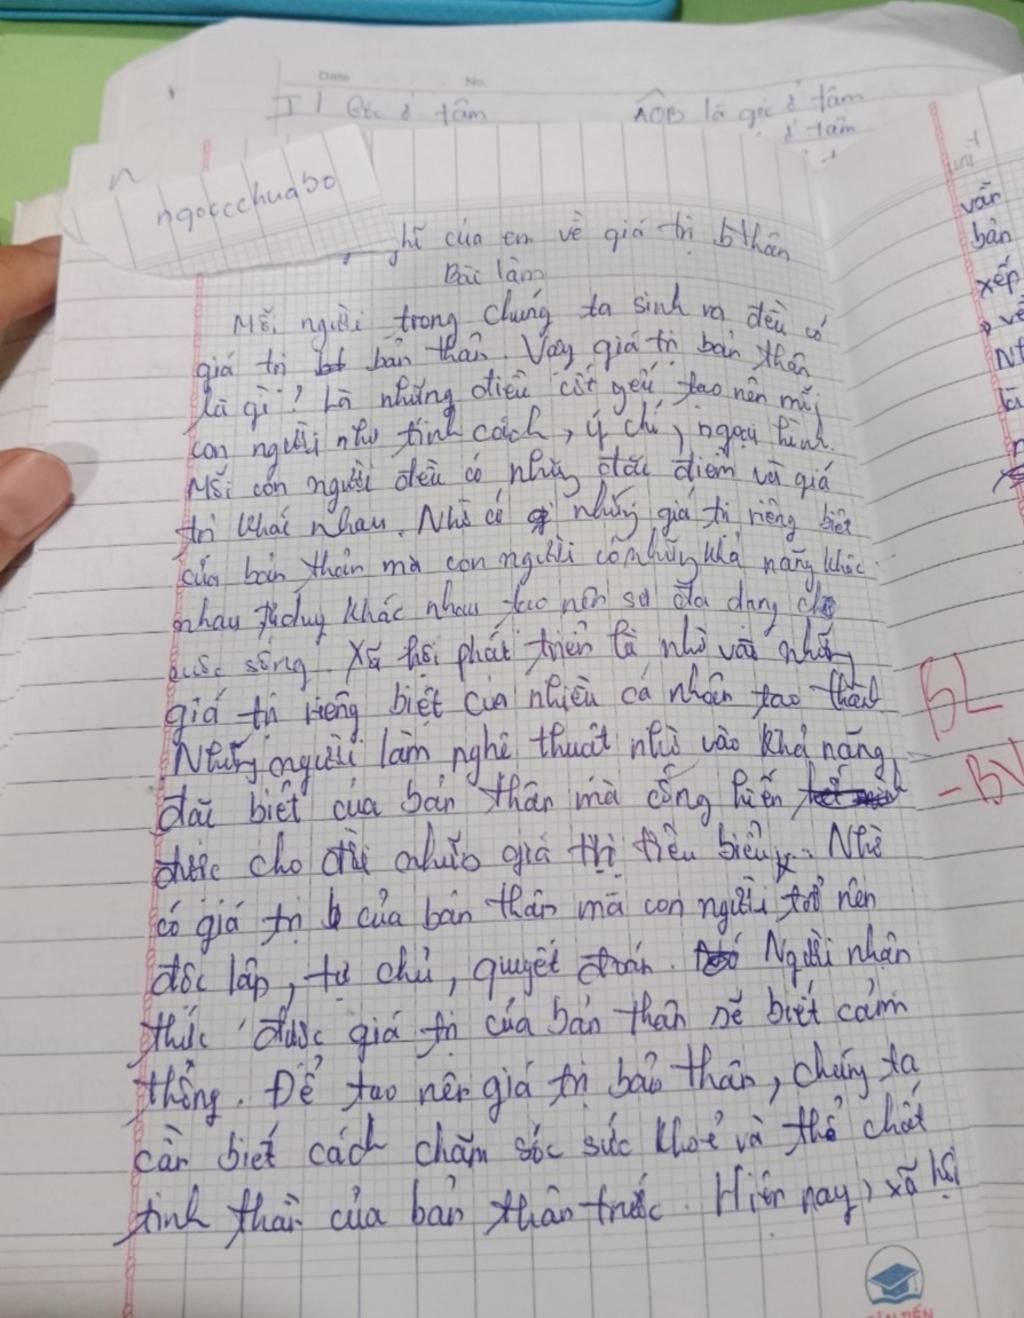 Date No
I Góc ở tâm AOB là góc ở tâm
ở tâm
ngoccchuabo
hĩ của em về giá trị bthân
Bài làm
Mỗi người trong chúng ta sinh ra đều có
giá trị bản thân. Vậy giá trị bản thân
là gì? Là những điều cốt yếu tạo nên mỗi
con người như tính cách, ý chí, ngoại hình.
Mỗi con người đều có những đặc điểm và giá
trị khác nhau. Nhờ có những giá trị riêng biệt
của bản thân mà con người có những khả năng khác
nhau, tư duy khác nhau tạo nên sự đa dạng cho
cuộc sống. Xã hội phát triển là nhờ vào những
giá trị riêng biệt của nhiều cá nhân tạo thành
Những người làm nghệ thuật nhờ vào khả năng
đặc biệt của bản thân mà cống hiến
được cho đời những giá trị tiêu biểu. Nhờ
có giá trị của bản thân mà con người trở nên
độc lập, tự chủ, quyết đoán. Người nhận
thức được giá trị của bản thân sẽ biết cảm
thông. Để tạo nên giá trị bản thân, chúng ta
cần biết cách chăm sóc sức khoẻ và thể chất
tinh thần của bản thân trước. Hiện nay, xã hội
văn
bản
xếp
về
5L